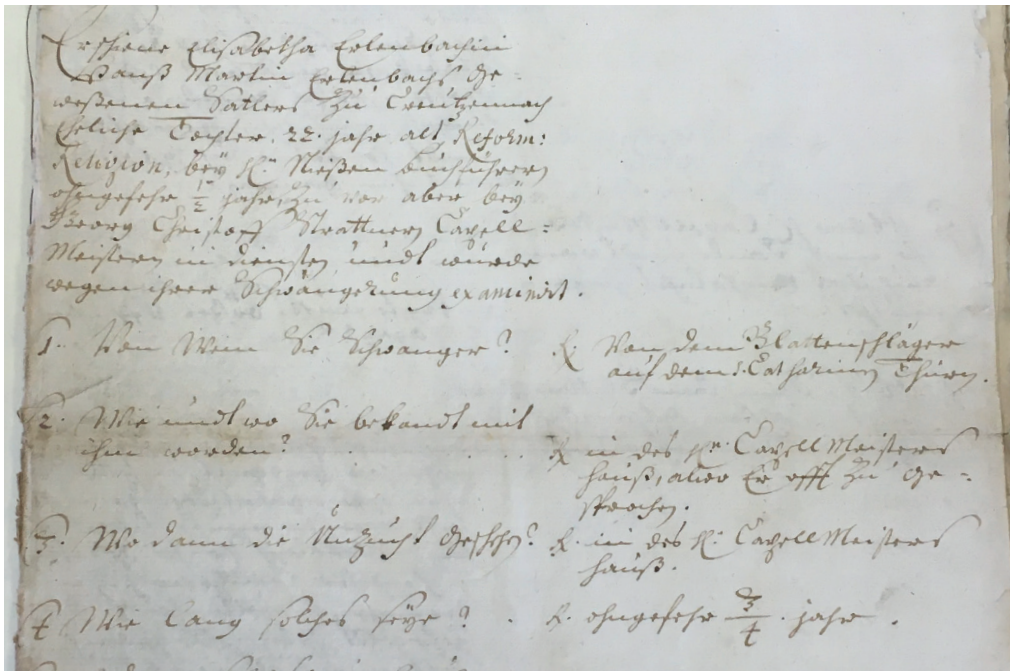 Erschiene Elisabetha Erlenbachin
Hanß Martin Erlenbachs Ge-
weßenen Satlers zu Creutzennach
Eheliche Tochter. 22. jahr alt, Reform:
Religion, bey H: Nießen buchführern
ohngefehr 1/2 jahr, zu vor aber bey
Georg Christoff Strattnern Capell-
Meistern in diensten, undt wurde
wegen ihrer Schwängerung examinirt.
1. Von Wem Sie Schwanger?
R: Von dem Blattenschläger
auf dem S. Catharinen Thurn.
2. Wie undt wo Sie bekandt mit
ihm worden?
R in des Hn: Capell Meisters
hauß, alwo Er offt zu ge-
sprochen.
3. Wo dann die Unzucht geschehen?
R. in des H: Capell Meisters
hauß.
4 Wie lang solches seye?
R. ohngefehr 3/4 jahr.